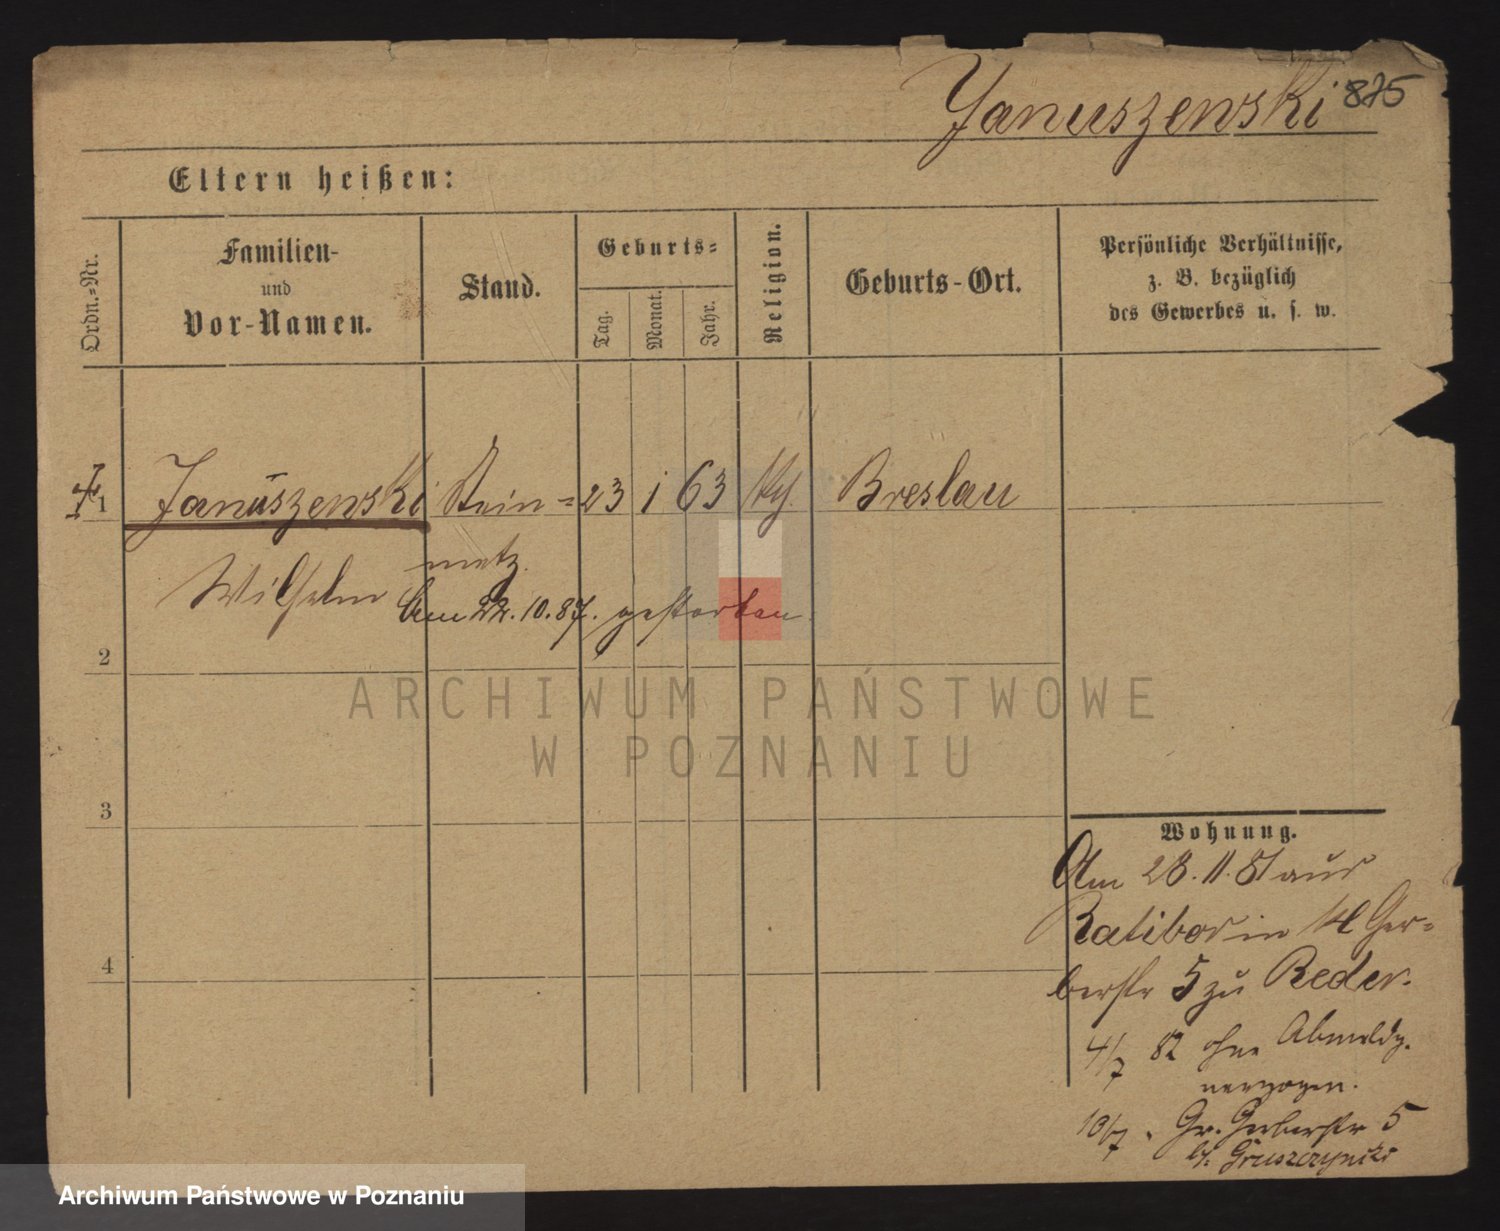 Januszewski 875
Eltern heißen:
Ordn.-Nr.
Familien-
und
Vor-Namen.
Stand.
Geburts-
Tag.
Monat.
Jahr.
Religion.
Geburts-Ort.
Persönliche Verhältnisse,
z. B. bezüglich
des Gewerbes u. s. w.
1 Januszewski Stein= 23 1 63 Breslau
Wilhelm metz.
Am 22.10.87. gestorben.
2
3
4
Wohnung.
Am 28.11.81 aus
Ratibor in Kl Ger-
berstr 5 zu Reder.
4/7 82 ohne Abmeldg.
verzogen.
10/7 " Gr. Gerberstr 5
b/. Gruszczynski
ARCHIWUM PAŃSTWOWE
W POZNANIU
Archiwum Państwowe w Poznaniu